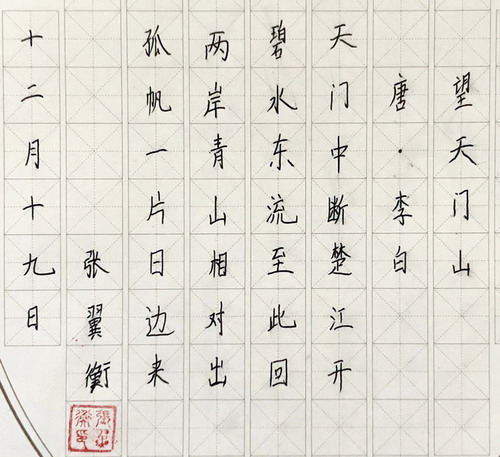 望天门山
唐·李白
天门中断楚江开
碧水东流至此回
两岸青山相对出
孤帆一片日边来
张翼衡
十二月十九日